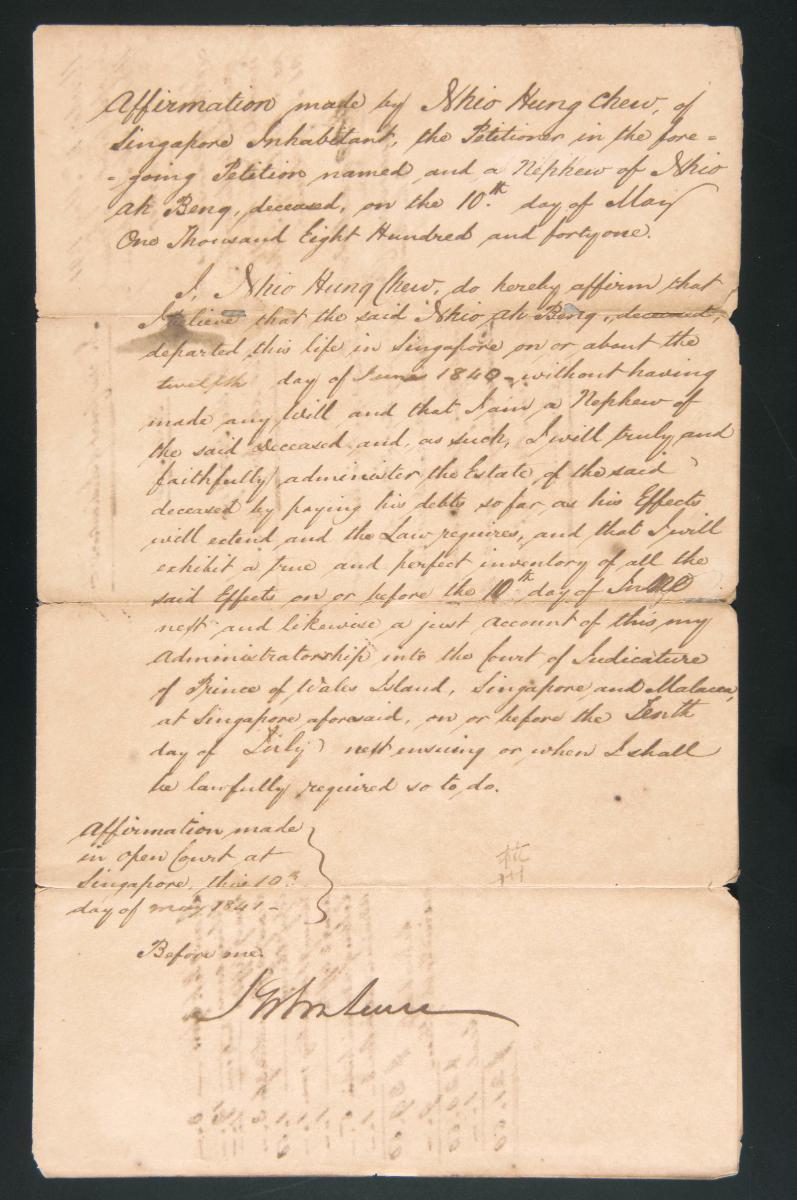 Affirmation made by Nhio Hung Chew, of
Singapore Inhabitant, the Petitioner in the fore=
=going Petition named and a Nephew of Nhio
ah Beng, deceased, on the 10.th day of May
One Thousand Eight Hundred and fortyone.
I, Nhio Hung Chew, do hereby affirm that
I believe that the said Nhio ah Beng, deceased,
departed this life in Singapore on or about the
twelfth day of June 1840 - without having
made any Will and that I am a Nephew of
the said deceased and, as such, I will truly and
faithfully administer the Estate of the said
deceased by paying his debts so far as his Effects
will extend and the Law requires, and that I will
exhibit a true and perfect inventory of all the
said Effects on or before the 10th day of June
next and likewise a just account of this my
Administratorship into the Court of Judicature
of Prince of Wales Island, Singapore and Malacca,
at Singapore aforesaid, on or before the Tenth
day of July next ensuing or when I shall
be lawfully required so to do.
Affirmation made
in open Court at
Singapore, this 10th
day of may 1841 -
Before me.